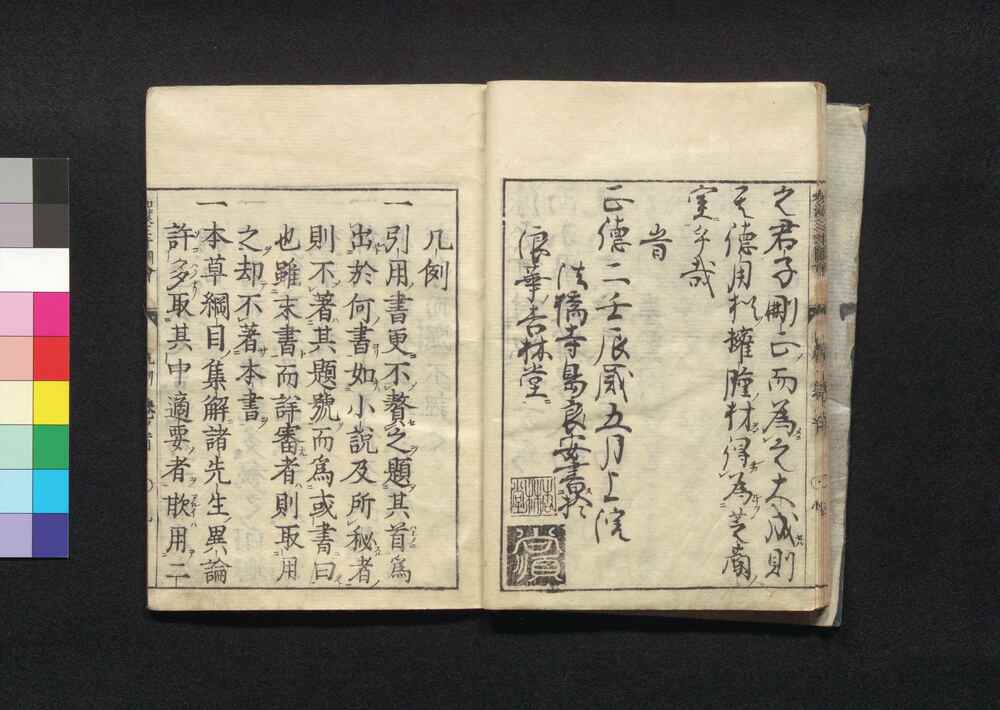 之君子刪正而為之大成則
其德用擬擁腫材得為芝蘭
室乎哉
旹
正德二壬辰歲五月上浣
法橋寺島良安書於
浪華杏林堂
杏林堂
凡例
一引用書更不贅之題其首爲
出於何書如小說及所秘者
則不著其題號而爲或書曰
也雖末書而詳審者則取用
之却不著本書
一本草綱目集解諸先生異論
許多取其中適要者歟用二